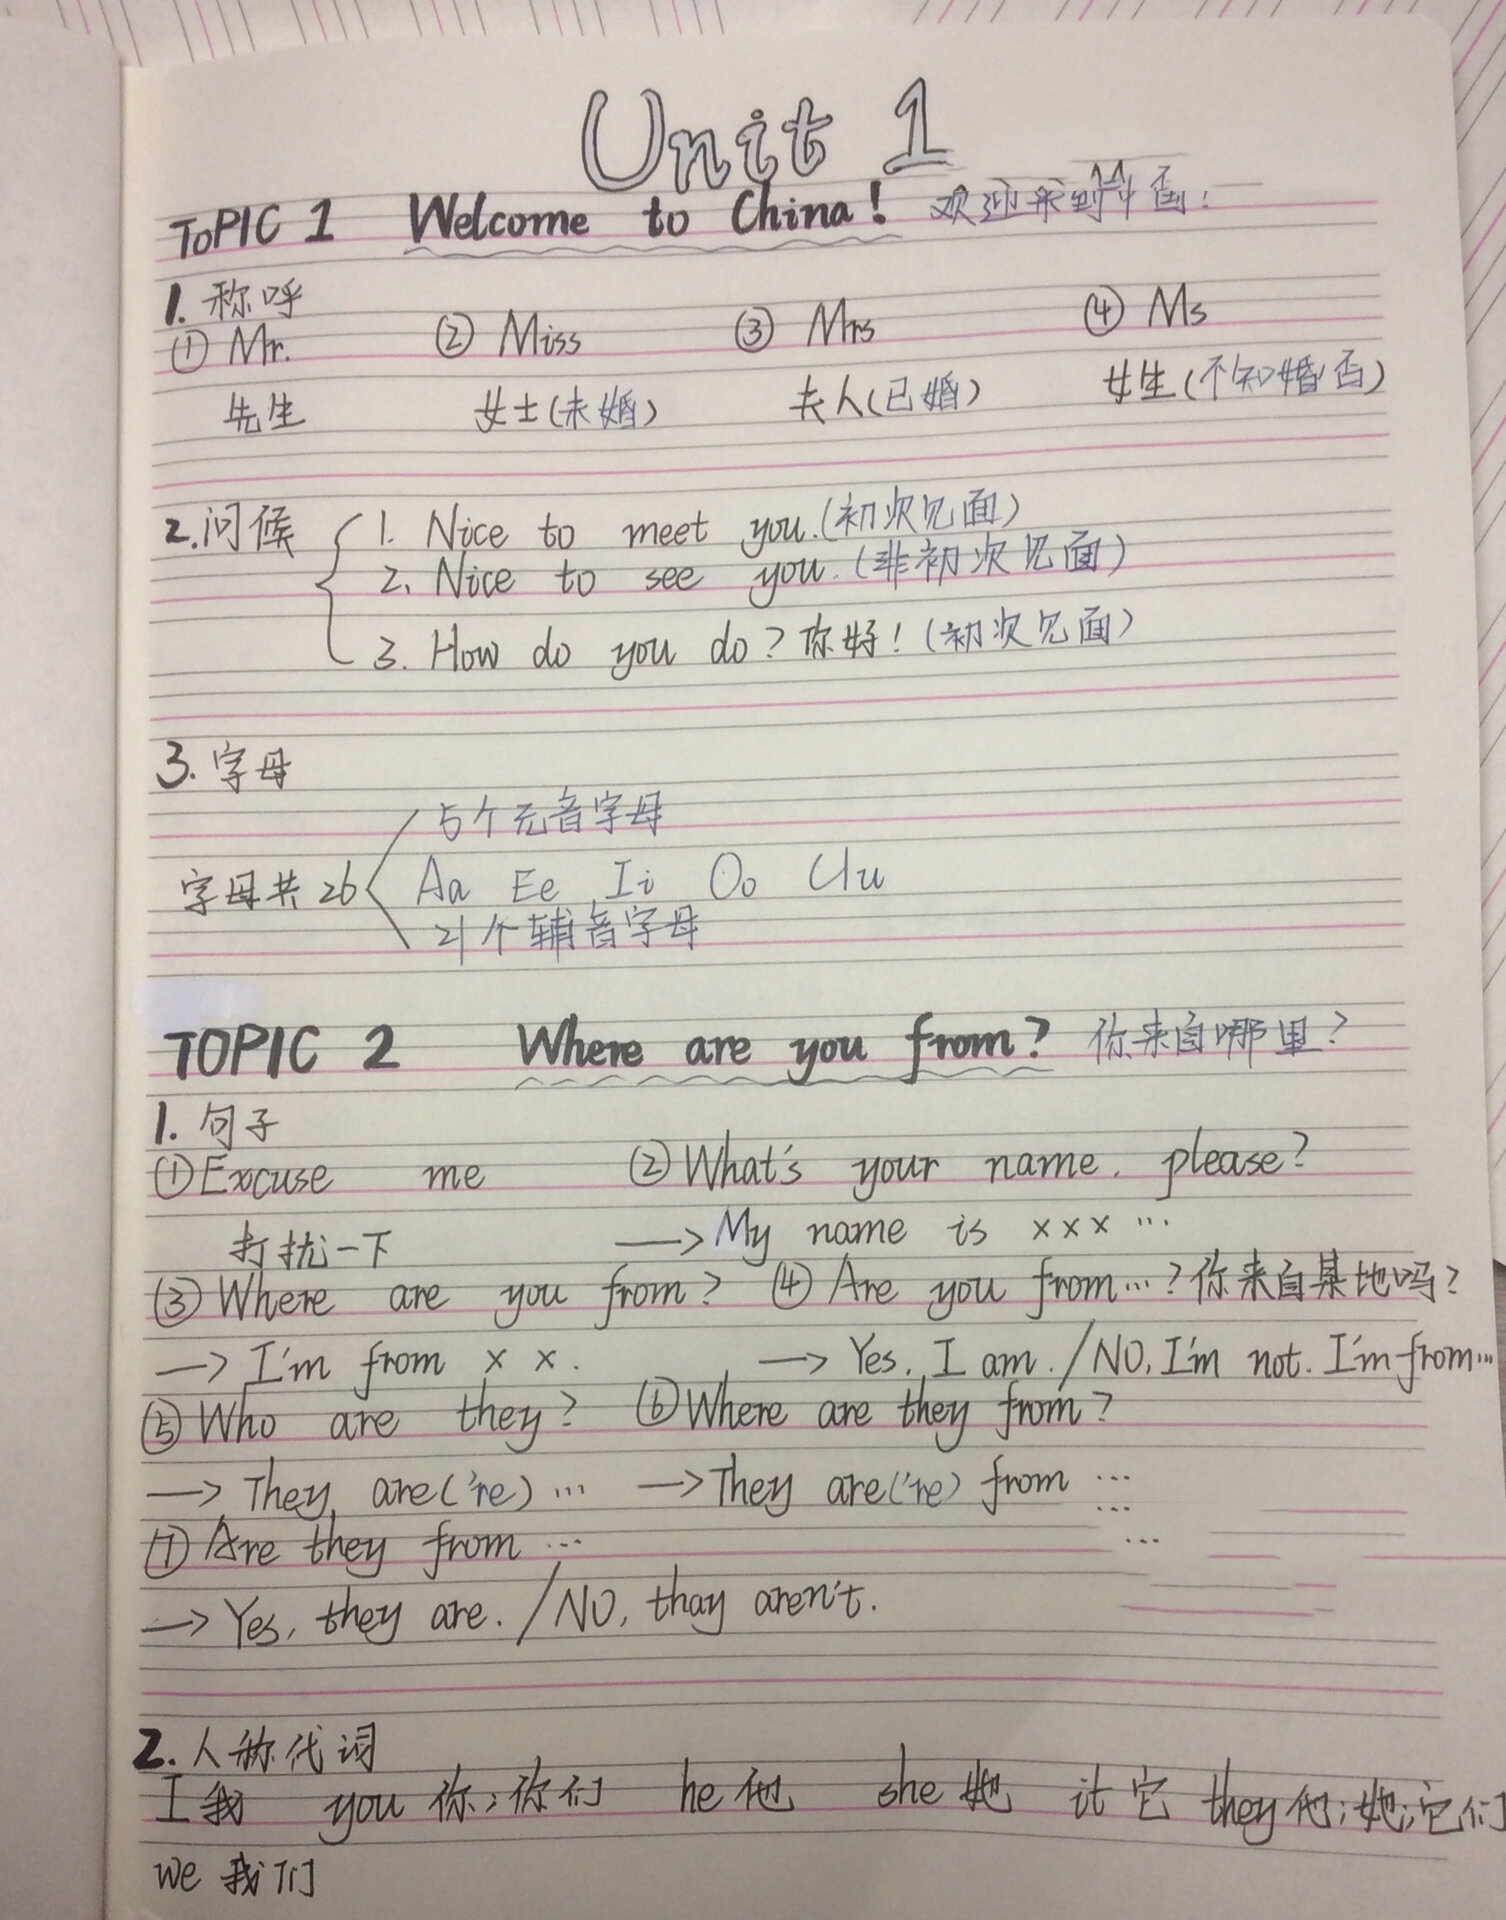 Unit 1
TOPIC 1 Welcome to China! 欢迎来到中国!
1. 称呼
① Mr. ② Miss ③ Mrs ④ Ms
先生 女士(未婚) 夫人(已婚) 女生(不知婚否)
2.问候 1. Nice to meet you.(初次见面)
2. Nice to see you.(非初次见面)
3. How do you do? 你好!(初次见面)
3. 字母
5个元音字母
字母共26 Aa Ee Ii Oo Uu
21个辅音字母
TOPIC 2 Where are you from? 你来自哪里?
1. 句子
①Excuse me ②What's your name, please?
打扰一下 → My name is xxx ...
③Where are you from? ④ Are you from...? 你来自某地吗?
→ I'm from x x. → Yes, I am. /NO, I'm not. I'm from...
⑤Who are they? ⑥Where are they from?
→ They are('re) ... → They are('re) from ...
...
① Are they from ... ...
→ Yes, they are. /NO, thay aren't.
2. 人称代词
I 我 you 你;你们 he 他 she 她 it 它 they 他;她;它们
we 我们